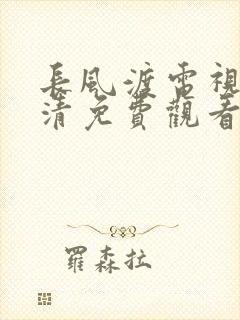 長風渡電視
清免費觀看
羅森拉